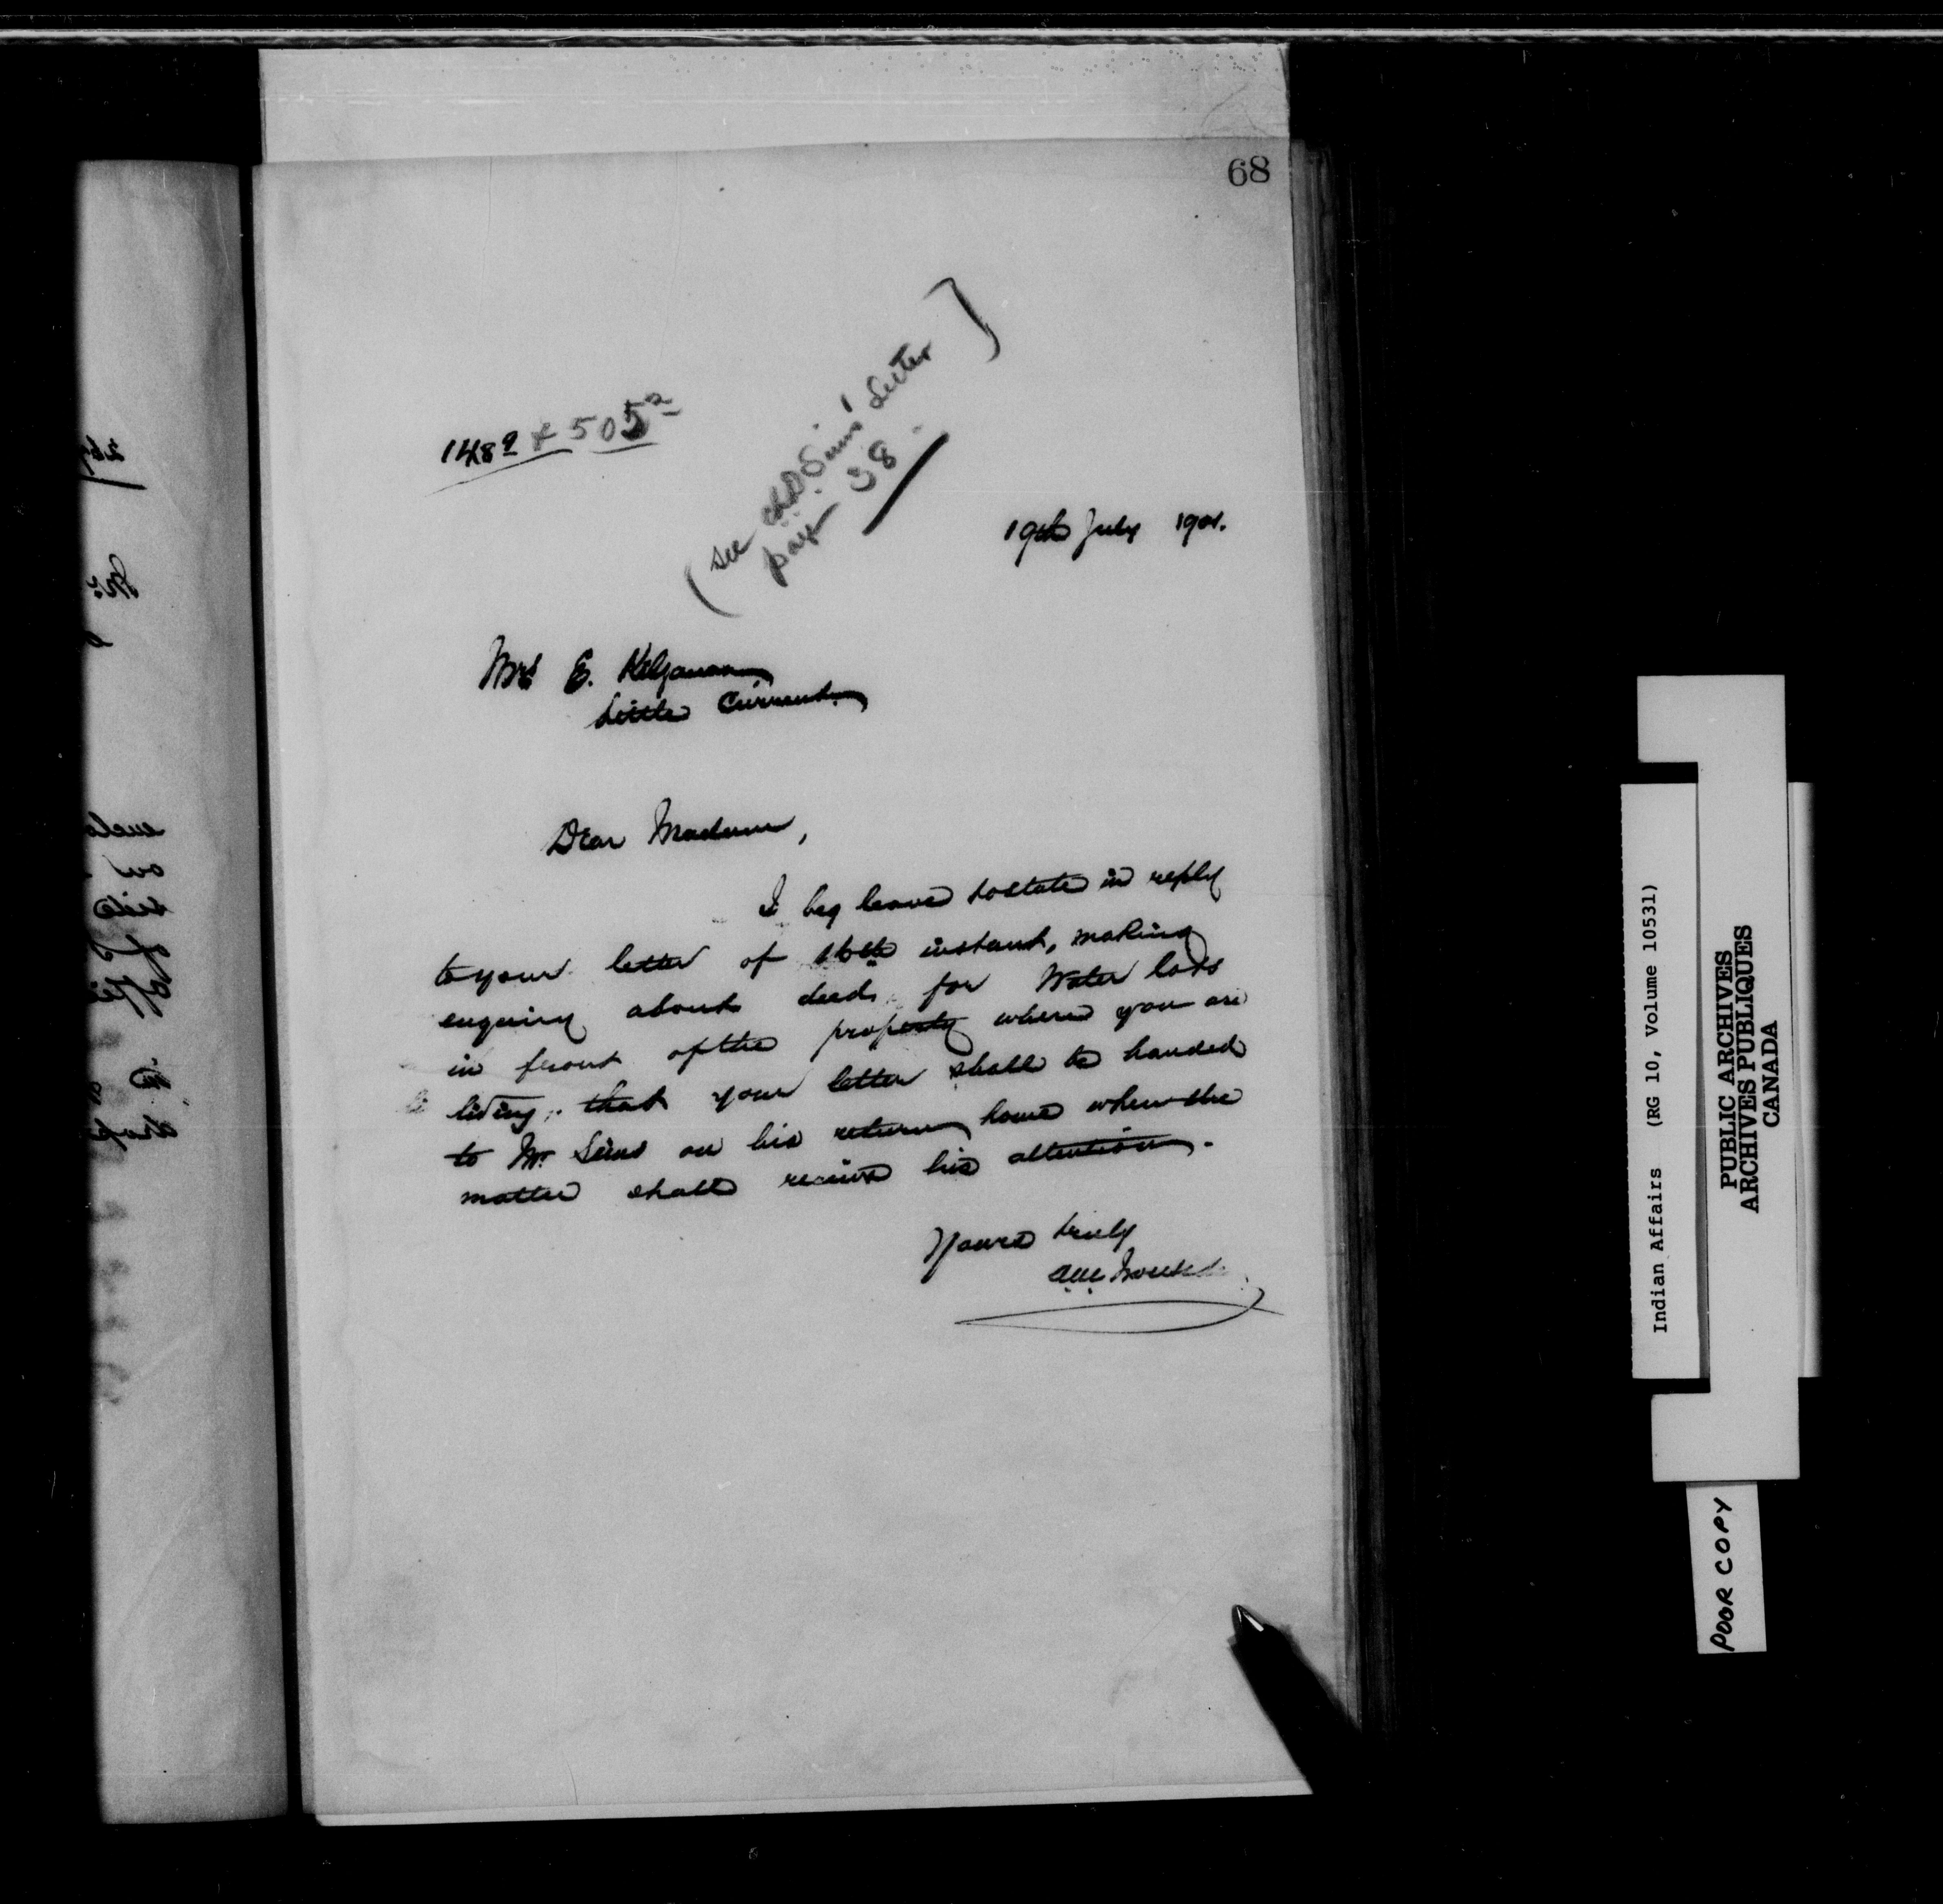 68
148⁹ & 505²
(see Sims' Letter
page 38)
19th July 1901.
Mrs E.
Little Current.
Dear Madam,
I beg leave to state in reply
to your letter of 16th instant, making
enquiry about deeds for Water lots
in front of the property where you are
living, that your letter shall be handed
to Mr Sims on his return home when the
matter shall receive his attention.
Yours truly
Indian Affairs (RG 10, Volume 10531)
PUBLIC ARCHIVES
ARCHIVES PUBLIQUES
CANADA
POOR COPY